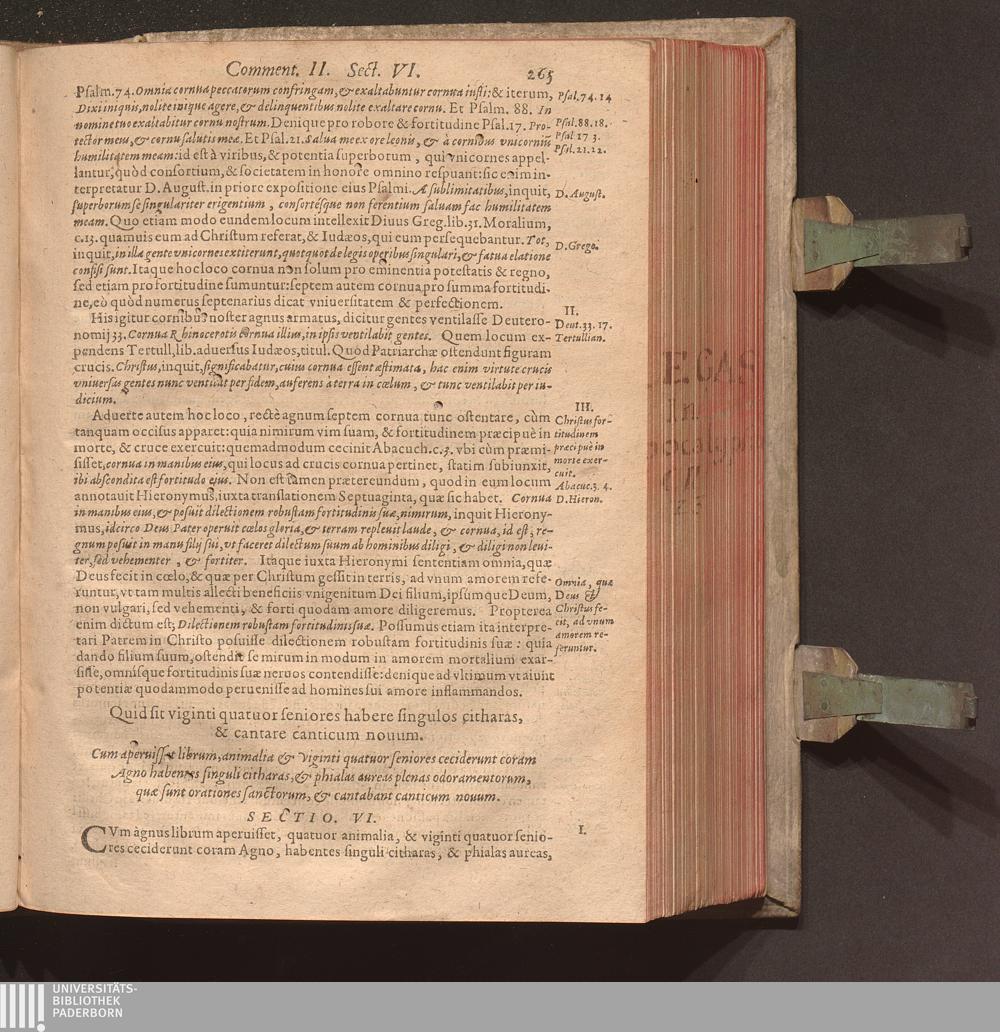 Comment. II. Sect. VI. 265
Psalm. 74. Omnia cornua peccatorum confringam, & exaltabuntur cornua iusti; & iterum,
Dixi iniquis, nolite inique agere, & delinquentibus nolite exaltare cornu. Et Psalm. 88. In
nomine tuo exaltabitur cornu nostrum. Denique pro robore & fortitudine Psal. 17. Pro-
tector meus, & cornu salutis meæ. Et Psal. 21. Salua me ex ore leonis, & à cornibus vnicorniũ
humilitatem meam: id est à viribus, & potentia superborum, qui vnicornes appel-
lantur, quòd consortium, & societatem in honore omnino respuant: sic enim in-
terpretatur D. August. in priore expositione eius Psalmi. A sublimitatibus, inquit,
superborum se singulariter erigentium, consortésque non ferentium saluam fac humilitatem
meam. Quo etiam modo eundem locum intellexit Diuus Greg. lib. 31. Moralium,
c. 13. quamuis eum ad Christum referat, & Iudæos, qui eum persequebantur. Tot,
inquit, in illa gente vnicornes extiterunt, quotquot de legis operibus singulari, & fatua elatione
confisi sunt. Itaque hoc loco cornua non solum pro eminentia potestatis & regno,
sed etiam pro fortitudine sumuntur: septem autem cornua pro summa fortitudi-
ne, eò quòd numerus septenarius dicat vniuersitatem & perfectionem.
His igitur cornibus noster agnus armatus, dicitur gentes ventilasse Deutero-
nomij 33. Cornua Rhinocerotis cornua illius, in ipsis ventilabit gentes. Quem locum ex-
pendens Tertull. lib. aduersus Iudæos, titul. Quòd Patriarchæ ostendunt figuram
crucis. Christus, inquit, significabatur, cuius cornua essent æstimata, hac enim virtute crucis
vniuersas gentes nunc ventilat per fidem, auferens à terra in cœlum, & tunc ventilabit per iu-
dicium.
Aduerte autem hoc loco, rectè agnum septem cornua tunc ostentare, cùm
tanquam occisus apparet: quia nimirum vim suam, & fortitudinem præcipuè in
morte, & cruce exercuit: quemadmodum cecinit Abacuch. c. 3. vbi cùm præmi-
sisset, cornua in manibus eius, qui locus ad crucis cornua pertinet, statim subiunxit,
ibi abscondita est fortitudo eius. Non est tamen prætereundum, quod in eum locum
annotauit Hieronymus, iuxta translationem Septuaginta, quæ sic habet. Cornua
in manibus eius, & posuit dilectionem robustam fortitudinis suæ, nimirum, inquit Hierony-
mus, idcirco Deus Pater operuit cœlos gloria, & terram repleuit laude, & cornua, id est, re-
gnum posuit in manu filij sui, vt faceret dilectum suum ab hominibus diligi, & diligi non leui-
ter, sed vehementer, & fortiter. Itaque iuxta Hieronymi sententiam omnia, quæ
Deus fecit in cœlo, & quæ per Christum gessit in terris, ad vnum amorem refe-
runtur, vt tam multis allecti beneficiis vnigenitum Dei filium, ipsúmque Deum,
non vulgari, sed vehementi, & forti quodam amore diligeremus. Propterea
enim dictum est; Dilectionem robustam fortitudinis suæ. Possumus etiam ita interpre-
tari Patrem in Christo posuisse dilectionem robustam fortitudinis suæ: quia
dando filium suum, ostendit se mirum in modum in amorem mortalium exar-
sisse, omnísque fortitudinis suæ neruos contendisse: denique ad vltimum vt aiunt
potentiæ quodammodo peruenisse ad homines sui amore inflammandos.
Quid sit viginti quatuor seniores habere singulos citharas,
& cantare canticum nouum.
Cum aperuisset librum, animalia & viginti quatuor seniores ceciderunt coram
Agno habentes singuli citharas, & phialas aureas plenas odoramentorum,
quæ sunt orationes sanctorum, & cantabant canticum nouum.
SECTIO. VI.
CVm agnus librum aperuisset, quatuor animalia, & viginti quatuor senio-
res ceciderunt coram Agno, habentes singuli citharas, & phialas aureas,
Psal. 74. 14
Psal. 88. 18.
Psal 17 3.
Psal. 21. 22.
D. August.
D. Grego.
II.
Deut. 33. 17.
Tertullian.
III.
Christus for-
titudinem
præcipuè in
morte exer-
cuit.
Abacuc. 3. 4.
D. Hieron.
Omnia, quæ
Deus &
Christus fe-
cit, ad vnum
amorem re-
feruntur.
I.
LEGAS
In
UNIVERSITÄTS-
BIBLIOTHEK
PADERBORN